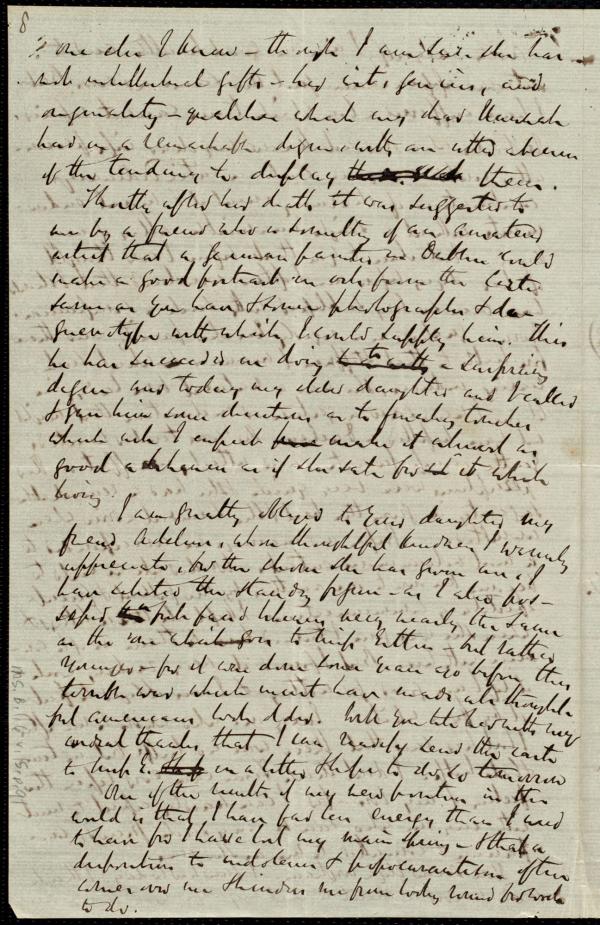 8
? one else I knew – though I am sure she has
not intellectual gifts – had wit, genius, and
originality – qualities which my dear Hannah
had in a remarkable degree, with an utter absence
of the tendency to display them.
Shortly after her death it was suggested to
me by a friend who is something of an amateur
artist that a German painter in Dublin could
make a good portrait in oils from the carte
same as you have & some photographs & da-
guerotype with which I could supply him. This
he has succeeded in doing to a surprising
degree and today my elder daughter and I called
& gave him some directions as to finishing touches
which will I expect make it almost as
good a likeness as if she sat for it while
living.
I am greatly obliged to your daughter my
friend Adeline, whose thoughtful kindness I warmly
appreciate, for the choice she has given me, I
have selected the standing figure – as I also pos-
sessed full faced likeness very nearly the same
as the one which goes to Miss Estlin – but rather
younger – for it was done some years ago before this
terrible war which must have made all thought-
ful americans look older. Will you tell her with my
cordial thanks that I can readily send the carte
to Miss E. in a letter & hope to do so tomorrow
One of the results of my new position in the
world is that I have far less energy than I used
to have for I have lost my main spring – & that a
disposition to indolence & pococurantism often
comes over me & hinders me from looking round for work
to do.